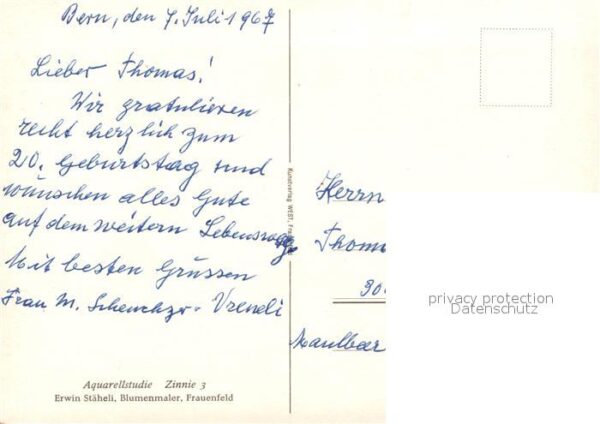 Bern, den 7. Juli 1967
Lieber Thomas!
Wir gratulieren
recht herzlich zum
20. Geburtstag und
wünschen alles Gute
auf dem weitern Lebensweg.
Mit besten Grüssen
Frau M. Scheuchzer - Vreneli
Aquarellstudie Zinnie 3
Erwin Stäheli, Blumenmaler, Frauenfeld
Kunstverlag WEST,
Herrn
Thom
30
Maulbeer
privacy protection
Datenschutz